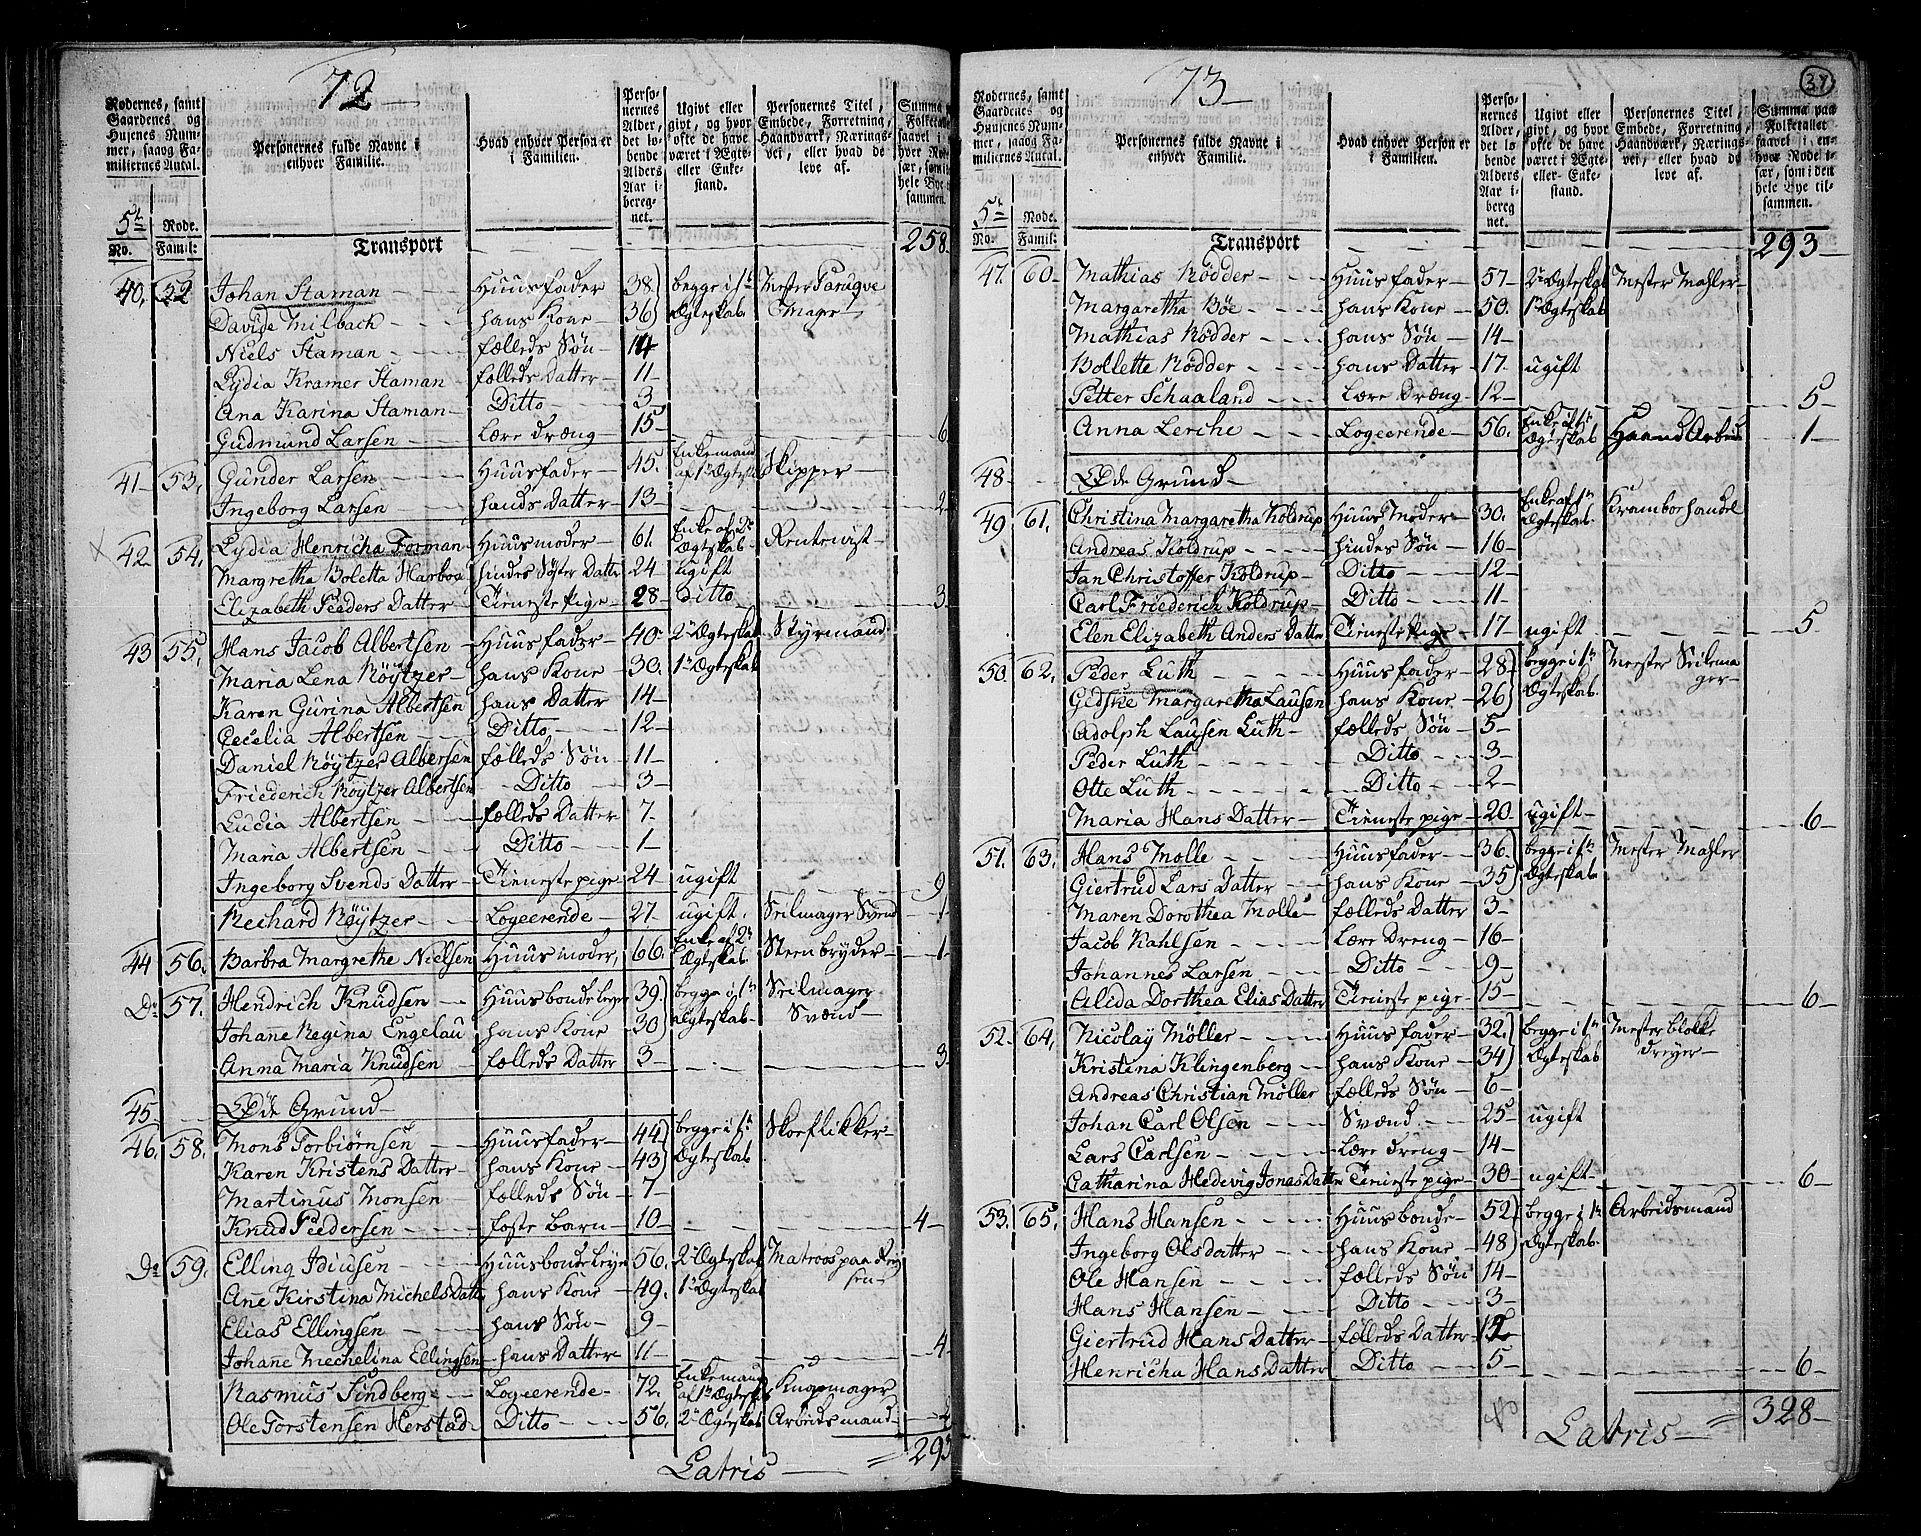 72
Rodernes, samt Gaardenes, og Husenes Nummer, saavog Familiernes Antal.
Personernes fulde Navne i enhver Familie.
Hvad enhver Person er i Familien.
Personernes Alder, det løbende Alders Aar iberegnet.
Ugivt eller givt, og hvor ofte de have været i Ægte- eller Enkestand.
Personernes Titel, Embede, Forretning, Haandværk, Næringsvei, eller hvad de leve af.
5te Rode.
No. Famil:
Transport 258.
40. 52 Johan Staman Huusfader 38) begge i 1te Mester Paruqve
Davide Milbach hans Kone 36) Ægteskab. Mager
Niels Staman fælleds Søn 14
Lydia Kramer Staman fælleds Datter 11
Ana Karina Staman Ditto 3
Gudmund Larsen Lære dræng 15 6
41 53. Gunder Larsen Huusfader 45. Enkemand af 1te Ægteskab Skipper
Ingeborg Larsen hands Datter 13 2
42 54. Lydia Henricha Forman Huusmoder 61. Enke af 2de Ægteskab Rentenist
Margretha Boletta Harboe hindes Søster Datter 24 ugift
Elizabeth Peeders Datter Tieneste Pige 28 Ditto 3
43 55. Hans Jacob Albertsen Huusfader 40 2de Ægteskab Styrmand
Maria Lena Röytzer hans Kone 30. 1te Ægteskab
Karen Gurina Albertsen hans Datter 14
Cecelia Albertsen Ditto 12
Daniel Röytzer Albersen fælleds Søn 11
Friederich Röytzer Albertsen Ditto 3
Lucia Albertsen fælleds Datter 7
Maria Albertsen Ditto 1
Ingeborg Svends Datter Tieneste pige 24 ugift 9
Rechard Röytzer Logeerende 27. ugift. Seilmager Svend 1
44 56. Barbra Margrethe Nielsen Huusmoder, 66. Enke af 2de Ægteskab Steenbryder 1
Do 57. Hendrich Knudsen Huusbonde Leyer 39) begge i 1te Seilmager
Johanne Regina Engelau hans Kone 30) Ægteskab Svænd
Anna Maria Knudsen fælleds Datter 3 3
45 Øde Grund
46. 58. Mons Torbiørnsen Huusfader 44) begge i 1te Skoeflikker
Karen Kristens Datter hans Kone 43) Ægteskab
Martinus Monsen fælleds Søn 7
Knud Peedersen foste Barn 10 4
Do 59. Elling Ididsen Huusbonde Leyer 56. 2de Ægteskab Matroos paa Reysen
Anne Kirstina Michels Datter hans Kone 49. 1te Ægteskab
Elias Ellingsen hans Søn 9
Johanne Mechelina Ellingsen hans Datter 11 4
Rasmus Sindberg Logeerende 72. Enkemand af 1te Ægteskab Knapmager
Ole Torstensen Herstad Ditto 56. 2de Ægteskab Arbeidsmand 2
Latris 293
73
37
Rodernes, samt Gaardenes, og Husenes Nummer, saavog Familiernes Antal.
Personernes fulde Navne i enhver Familie.
Hvad enhver Person er i Familien.
Personernes Alder, det løbende Alders Aar iberegnet.
Ugivt eller givt, og hvor ofte de have været i Ægte- eller Enkestand.
Personernes Titel, Embede, Forretning, Haandværk, Næringsvei, eller hvad de leve af.
Summa paa Folketallet saavel i enhver Rode især, som i den hele Bye tilsammen.
5te Rode.
No. Famil:
Transport 293
47. 60. Mathias Rödder Huusfader 57. 2de Ægteskab Mester Mahler
Margaretha Böe hans Kone 50. 1te Ægteskab
Mathias Rödder hans Søn 14
Bollette Rödder hans Datter 17. ugift
Petter Schaaland Lære Dræng 12 5
Anna Lerche Logeerende 56. Enke af 1te Ægteskab Haand Arbeid 1
48 Øde Grund
49 61. Christina Margaretha Koldrup Huus Moder 30. Enke af 1te Ægteskab Kramborhandel
Andreas Koldrup hindes Søn 16
Jan Christoffer Koldrup Ditto 12
Carl Friederich Koldrup Ditto 11
Elen Elizabeth Anders Datter Tieneste Pige 17 ugift 5
50. 62. Peder Luth Huusfader 28) begge i 1te Mester Seilmager
Gedske Margaretha Lausen hans Kone 26) Ægteskab.
Adolph Lausen Luth fælleds Søn 5
Peder Luth Ditto 3
Otte Luth Ditto 2
Maria Hans Datter Tieneste pige 20 ugift 6
51. 63. Hans Molle Huusfader 36. begge i 1te Mester Mahler
Giertrud Lars Datter hans Kone 35) Ægteskab
Maren Dorothea Molle fælleds Datter 3
Jacob Kahlsen Lære Dreng 16
Johannes Larsen Ditto 9
Alida Dorthea Elias Datter Tieneste pige 15 6
52. 64. Nicolay Möller Huusfader 32.) begge i 1te Mester blokke
Kristina Klingenberg hans Kone 34) Ægteskab dreyer
Andreas Christian Möller fælleds Søn 6
Johan Carl Olsen Svænd 25 ugift
Lars Carlsen Lære dreng 14
Catharina Hedevig Jonas Datter Tieneste pige 30 ugift 6
53. 65. Hans Hansen Huusbonde 52) begge i 1te Arbeidsmand
Ingeborg Olsdatter hans Kone 48) Ægteskab.
Ole Hansen fælleds Søn 14
Hans Hansen Ditto 3
Giertrud Hans Datter fælleds Datter 12
Henricha Hans Datter Ditto 5 6
Latris 328